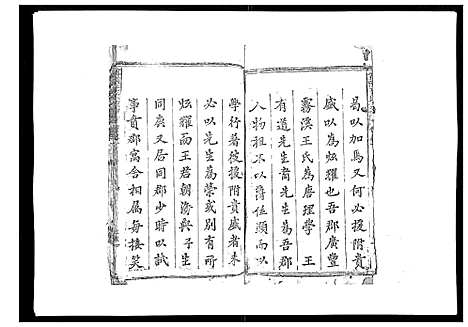 曷以加焉又何必援附貴
盛以為炫耀也吾郡廣豐
霧溪王氏為唐理學 王
有道先生裔先生為吾郡
人物祖不以爵位顯而以
學行著彼援附貴盛者未
必以先生為榮或別有所
炫耀而王君朝瀚與予生
同庚又居同郡少時以試
事賁郡寓舍相属每接笑